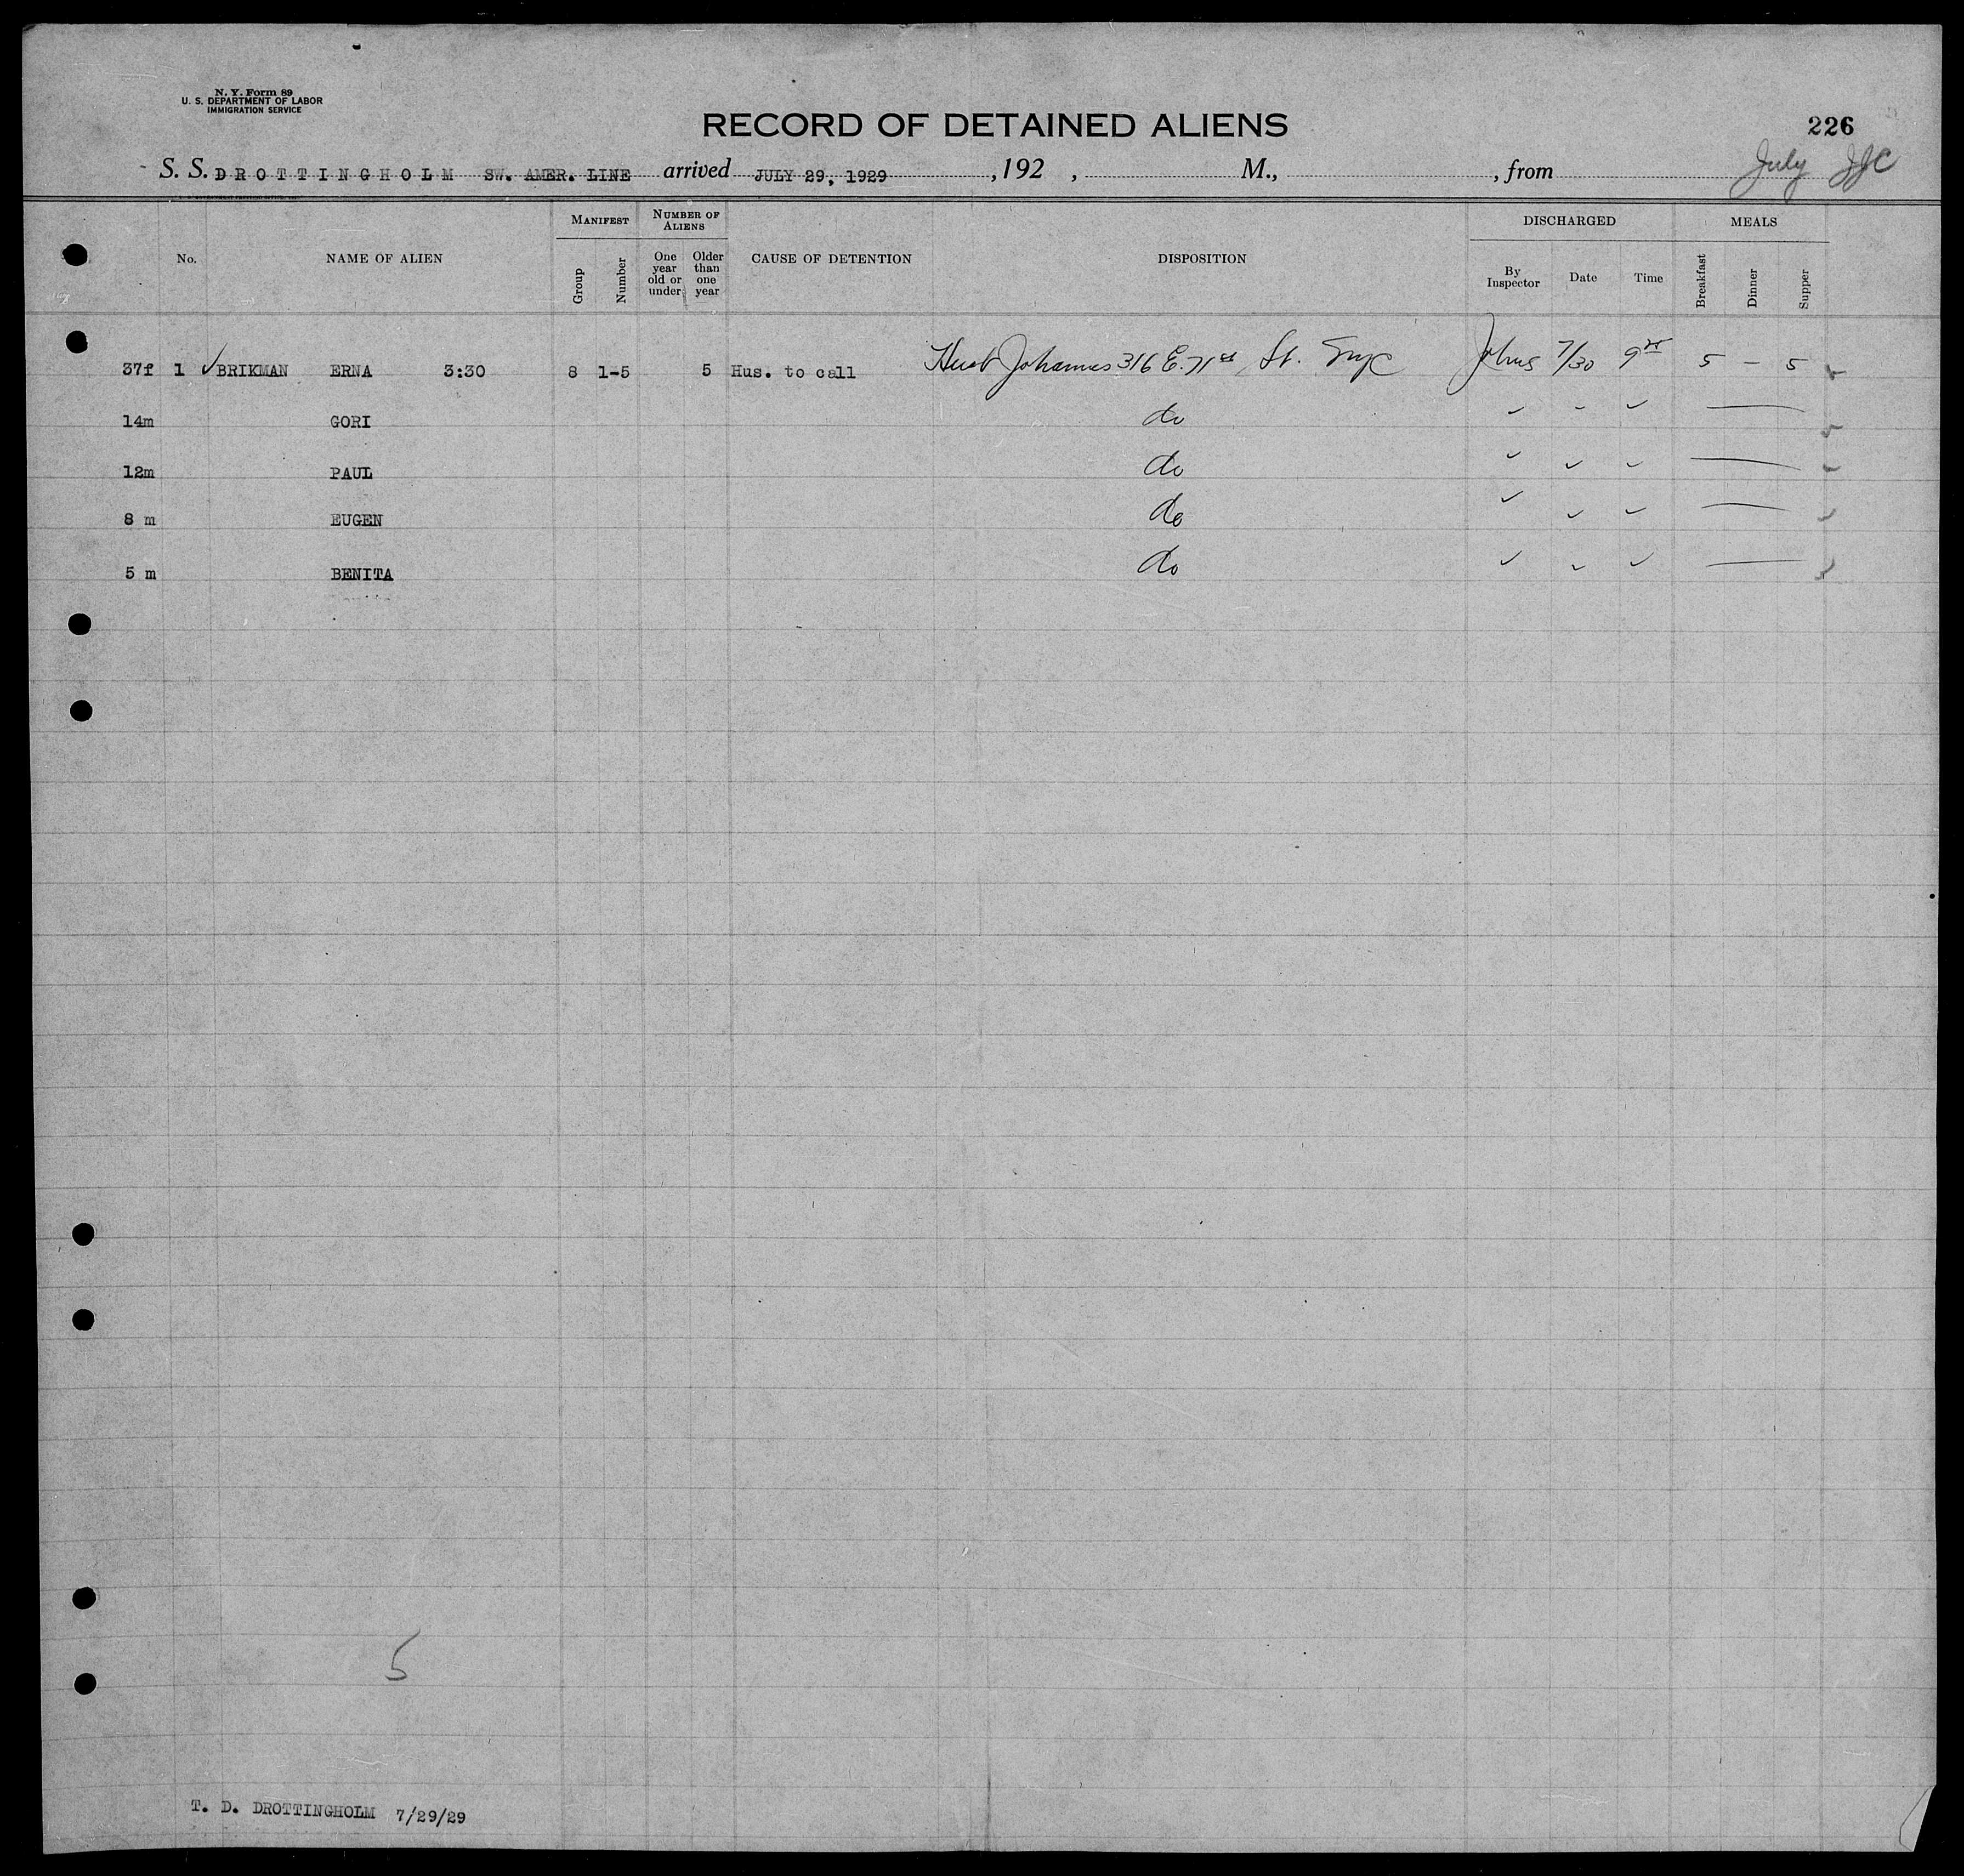 N. Y. Form 89
U. S. DEPARTMENT OF LABOR
IMMIGRATION SERVICE
RECORD OF DETAINED ALIENS
226
S. S. DROTTINGHOLM SW. AMER. LINE arrived JULY 29, 1929, 192 , M., , from July JJC
No. NAME OF ALIEN MANIFEST Group Number NUMBER OF ALIENS One year old or under Older than one year CAUSE OF DETENTION DISPOSITION DISCHARGED By Inspector Date Time MEALS Breakfast Dinner Supper
37f 1 ✓ BRIKMAN ERNA 3:30 8 1-5 5 Hus. to call Husb Johannes 316 E. 71st St. NYC Johns 7/30 5 – 5
14m GORI do ✓ ✓ ✓ —
12m PAUL do ✓ ✓ ✓ —
8 m EUGEN do ✓ ✓ ✓ —
5 m BENITA do ✓ ✓ ✓ —
5
T. D. DROTTINGHOLM 7/29/29